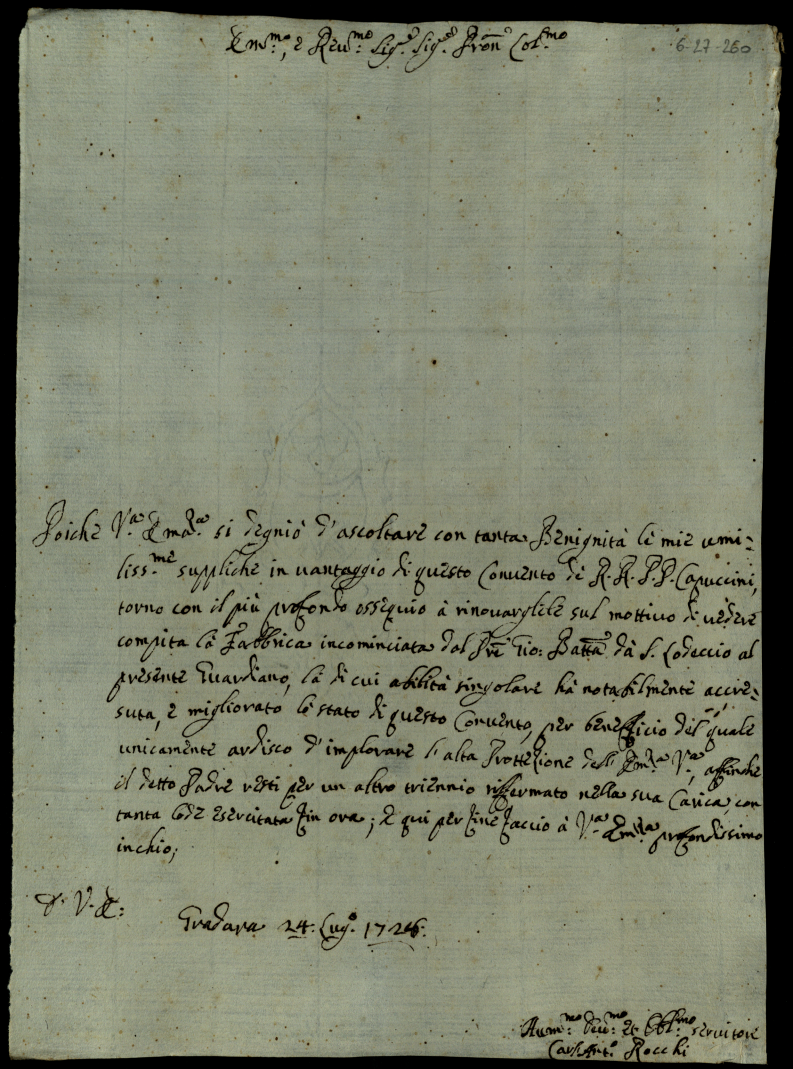 Em.mo, e Rev.mo Sig.r Sig.r Pron Col.mo
6-27-260
Poiche V.a Ema.a si degniò d'ascoltare con tanta Benignità le mie umi=
liss.me suppliche in uantaggio di questo Conuento de R.R.P.P. Capuccini,
torno con il più profondo ossequio à rinouarglile sul mottiuo di uedere
compita la Fabbrica incominciata dal Pre Gio: Batta dà S. Lodeccio al
presente Guardiano, la di cui abilità singolare hà notabilmente accre=
suta, e migliorato lo stato di questo Conuento, per benefficio del quale
unicamente ardisco d'implorare l'alta Prottezione dell' Em.za V.a, affinche
il detto Padre resti per un altro triennio riffermato nella sua Carica, con
tanta lode esercitata fin ora; E qui per fine faccio à V.a Em.za profondissimo
inchio;
D. V. E:
Gradara 24. Lug.o 1726.
Hum.mo Deu.mo et Obl.mo seruitore
Carl'Ant.o Rocchi